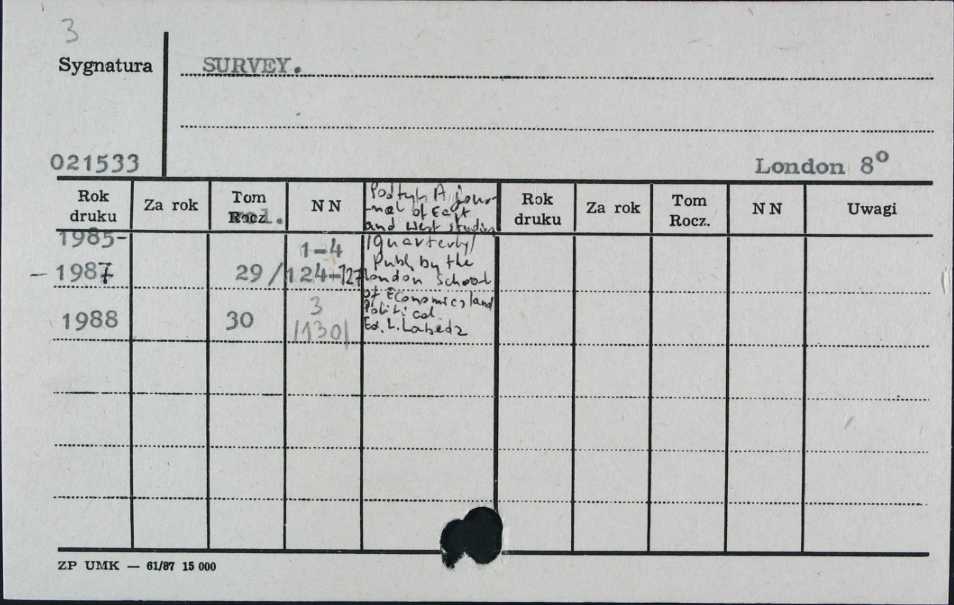 3
Sygnatura
SURVEY.
021533
London 8⁰
Rok druku Za rok Tom Rocz. vol. N N Rok druku Za rok Tom Rocz. N N Uwagi
Podtyt. A jour-
nal of East
and West studies
/quarterly/
Publ. by the
London School
of Economics and
Political.
Ed. L. Labedz
1985-
-1987 29/ 1-4
124-127
1988 30 3
/130/
ZP UMK — 61/87 15 000